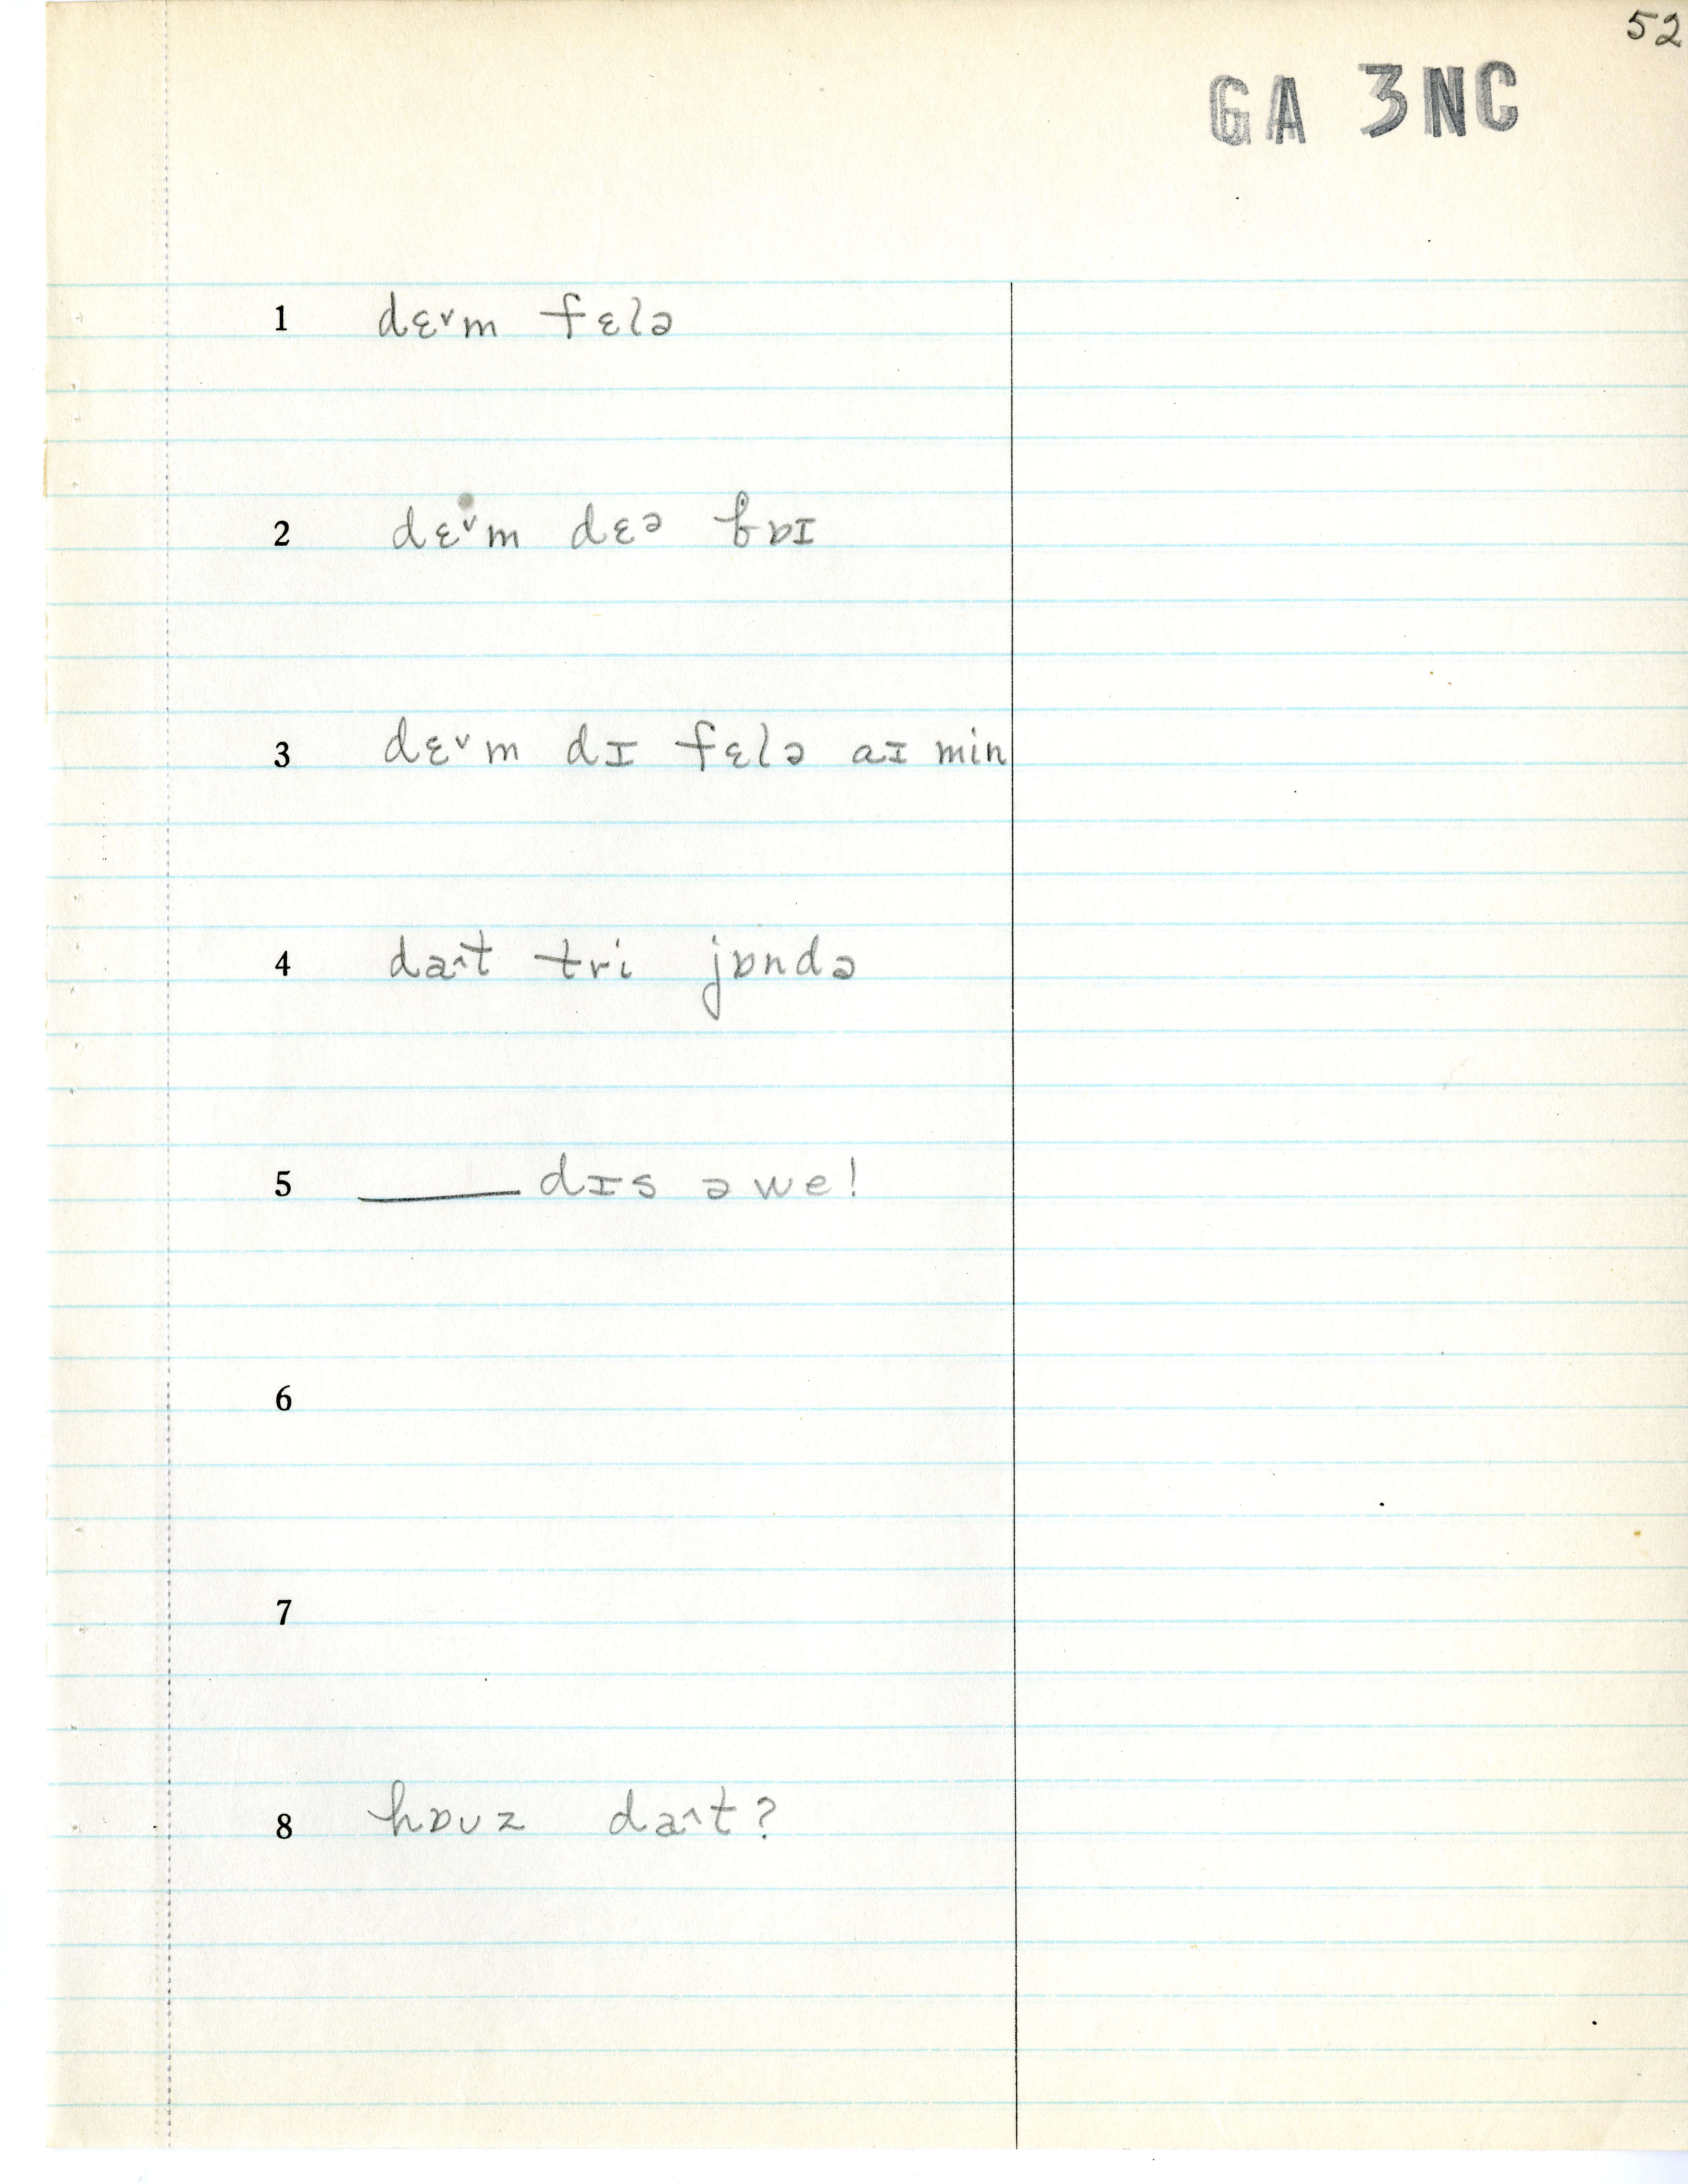 52
GA 3NC
1 dɛ˅m fɛlə
2 dɛ˅m dɛə ɓɒɪ
3 dɛ˅m dɪ fɛlə aɪ min
4 da˄t tri jɒndə
5 ______ dɪs əwe!
6
7
8 hɒʊz da˄t?